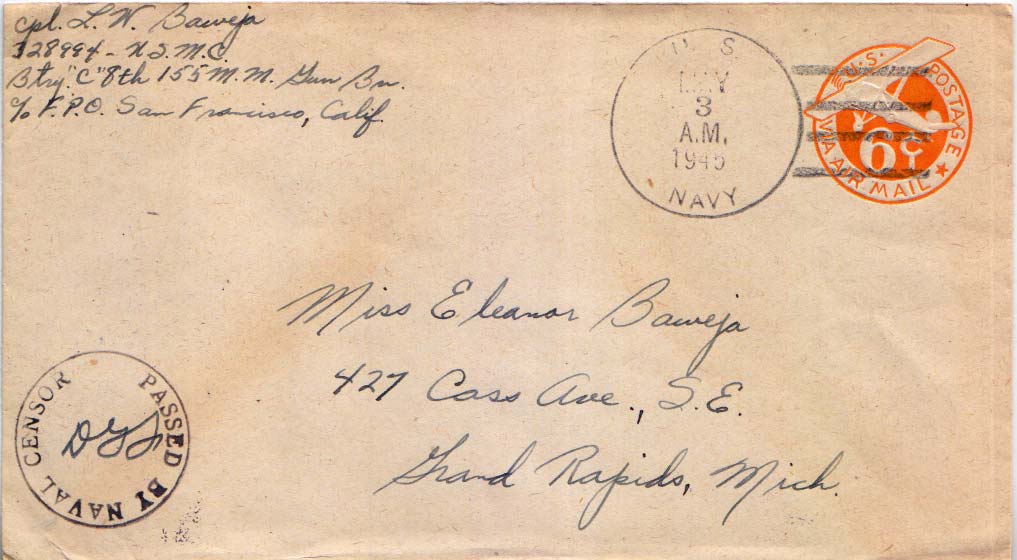 Cpl. L. W. Baweja
328994 - U.S.M.C.
Btry. "C" 8th 155 M.M. Gun Bn.
c/o F.P.O. San Francisco, Calif.
U S
MAY
3
A.M.
1945
NAVY
U.S. POSTAGE
6¢
VIA AIR MAIL
Miss Eleanor Baweja
427 Cass Ave., S.E.
Grand Rapids, Mich.
PASSED BY NAVAL CENSOR